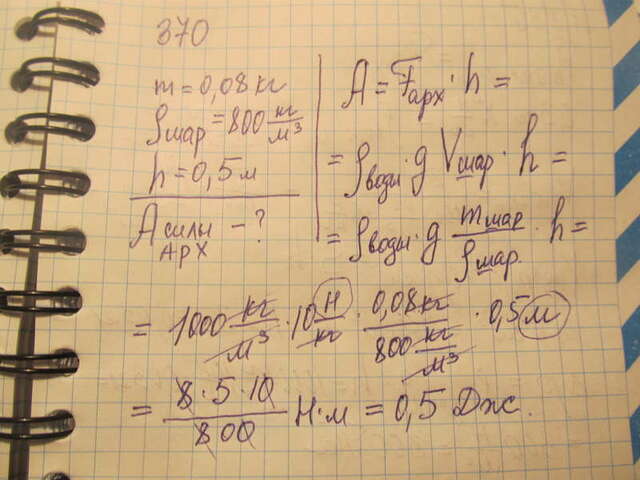 370
m = 0,08 кг
ρшар = 800 кг/м³
h = 0,5 м
A силы Арх - ?
A = Fарх · h =
= ρводы · g Vшар · h =
= ρводы · g mшар/ρшар · h =
= 1000 кг/м³ · 10 Н/кг · 0,08 кг/800 кг/м³ · 0,5 м
= 8·5·10/800 Н·м = 0,5 Дж.